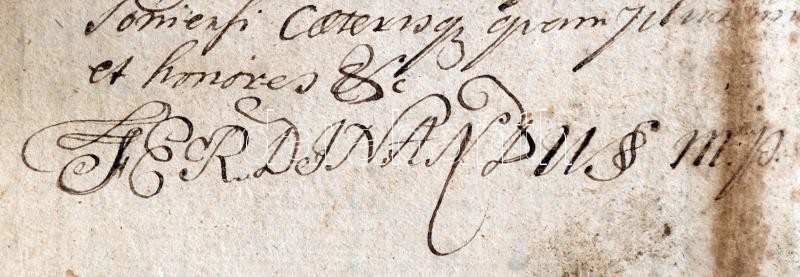 soniensi Cæterisq quam plurimis
et honores &c
FERDINANDUS m.p.